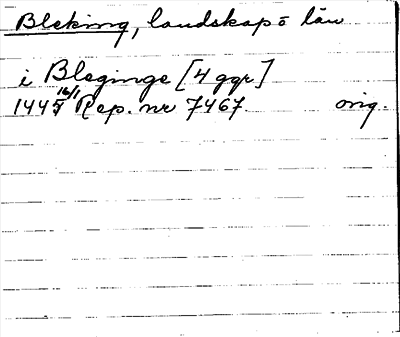 Bleking, landskap o län
i Bleginge [4 ggr]
1445 16/1 Rep. nr 7467 orig.